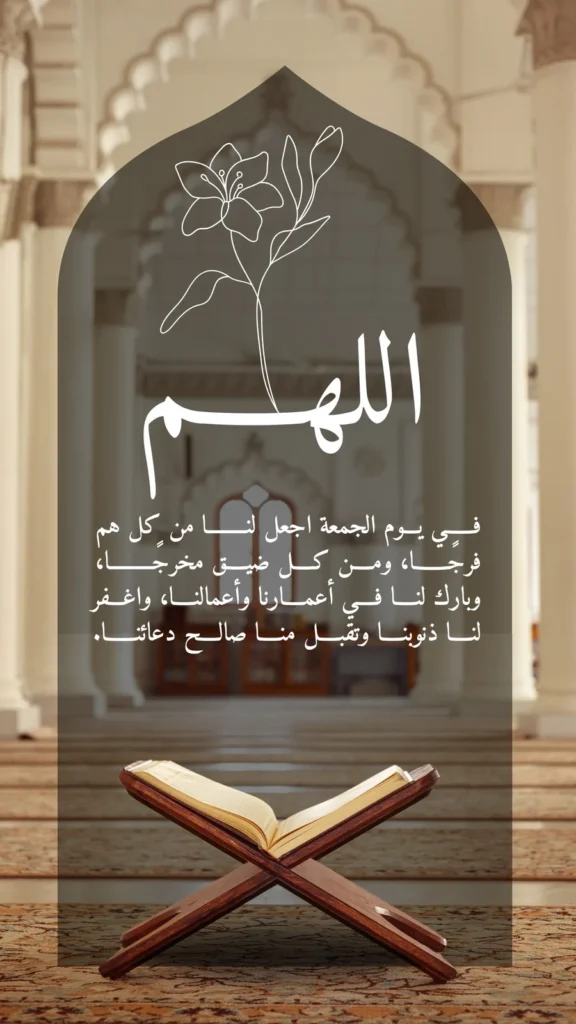 اللهم
في يوم الجمعة اجعل لنا من كل هم
فرجًا، ومن كل ضيق مخرجًا،
وبارك لنا في أعمارنا وأعمالنا، واغفر
لنا ذنوبنا وتقبل منا صالح دعائنا.